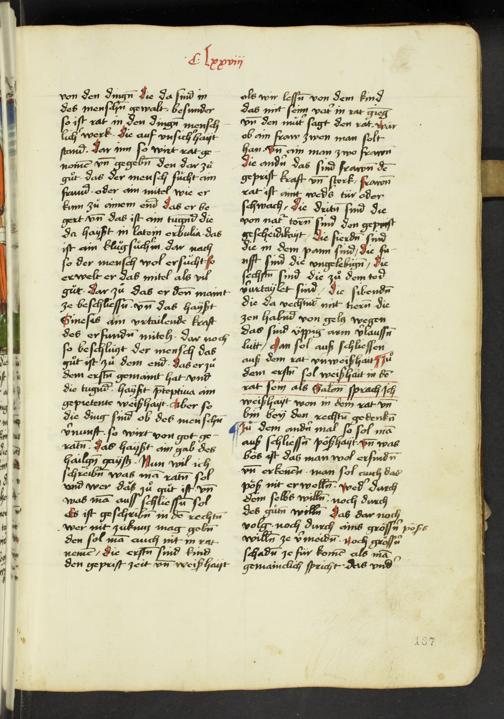 C lxxviii
von den dingn Die da sind in
des menschn gewalt besunder
so ist rat in den dingn mensch
lich werk Die auf vnsichhayt
stand Dar inn so wirt rat ge
nomen vn̄ gegebn̄ den dar zů
gůt das der mensch sucht ain
fraind oder ain mitel wie er
kum zů ainem end Das er be
gert vn̄ das ist ain tugnd die
da hayst in latein eubulia das
ist ain klůg sůchūn Dar nach
so der mensch wol ersucht So
erwelt er das mitel als vil
gůt Dar zů das er den maint
ze beschliessn̄ vn̄ das hayst
Sinesis ain vrtailende kraft
des erfundn̄ miteln Dar noch
so beschlust der mensch das
gůt ist zů dem end Das er zů
dem ersten gemaint hat vnd
die tugnd hayst
gepietente weishayt Aber so
die ding sind ob des menschn̄
vernunft so wirt von got ge
ratn̄ Das hayst ain gab des
hailign gaysts Nun wil ich
schreibn̄ was ma ratn̄ sol
vnd wer das zů gůt ist vn̄
was ma auss schliessn̄ sol
Es ist geschribn̄ in dē rechtn̄
wer nit zukunftig mag gebn̄
den sol mā auch nit in rat
nemē Die erstn̄ sind kind
den geprist zeit vn̄ weishayt
als wir lessn̄ von dem kind
das mit seim vatr in rat gieng
vn̄ den mutr sagt den rat war
ob ain frawr zwen man solt
han Vn ain man zwo frawn
Die andn̄ das sind frawn dē
geprist kraft vn̄ sterk frawen
rat ist aint weds tur oder
schwach Die dritn̄ sind die
von natr torn̄ sind den geprist
geschidikayt Die fierdn̄ sind
die in dem pann sind Die fu
nfft sind die vngelebign̄ Die
sechstn̄ sind die zů dem tod
vurtaylet sind Die sibendn̄
die da rechtn̄t mit tiern̄ die
zen habnd von geltz wegen
das sind vppig arm vlaussn̄
lautt Man sol auss schliessn̄
auss dem rat vnweishait Zů
dem erstn̄ sol weishait in dē
rat sein als Salomon sprach Ich
weishayt won in dem rat vn̄
bin bey den rechtn̄ gedenkn̄
Zů dem andn̄ mal so sol mā
auss schliessn̄ poshayt Vn̄ was
bos ist das man wol erfindn̄
vn̄ erkenn̄t man sol auch das
pös nit erwelln̄ wedr durch
dem selbs willn̄ noch durch
des gůtn̄ willn̄ Das dar noch
volg noch durch ains grössn̄ pöss
willn̄ ze vmeidn̄ Noch grössn̄
schadn̄ ze für komē als mā
gemainclich spricht Das vnd
187